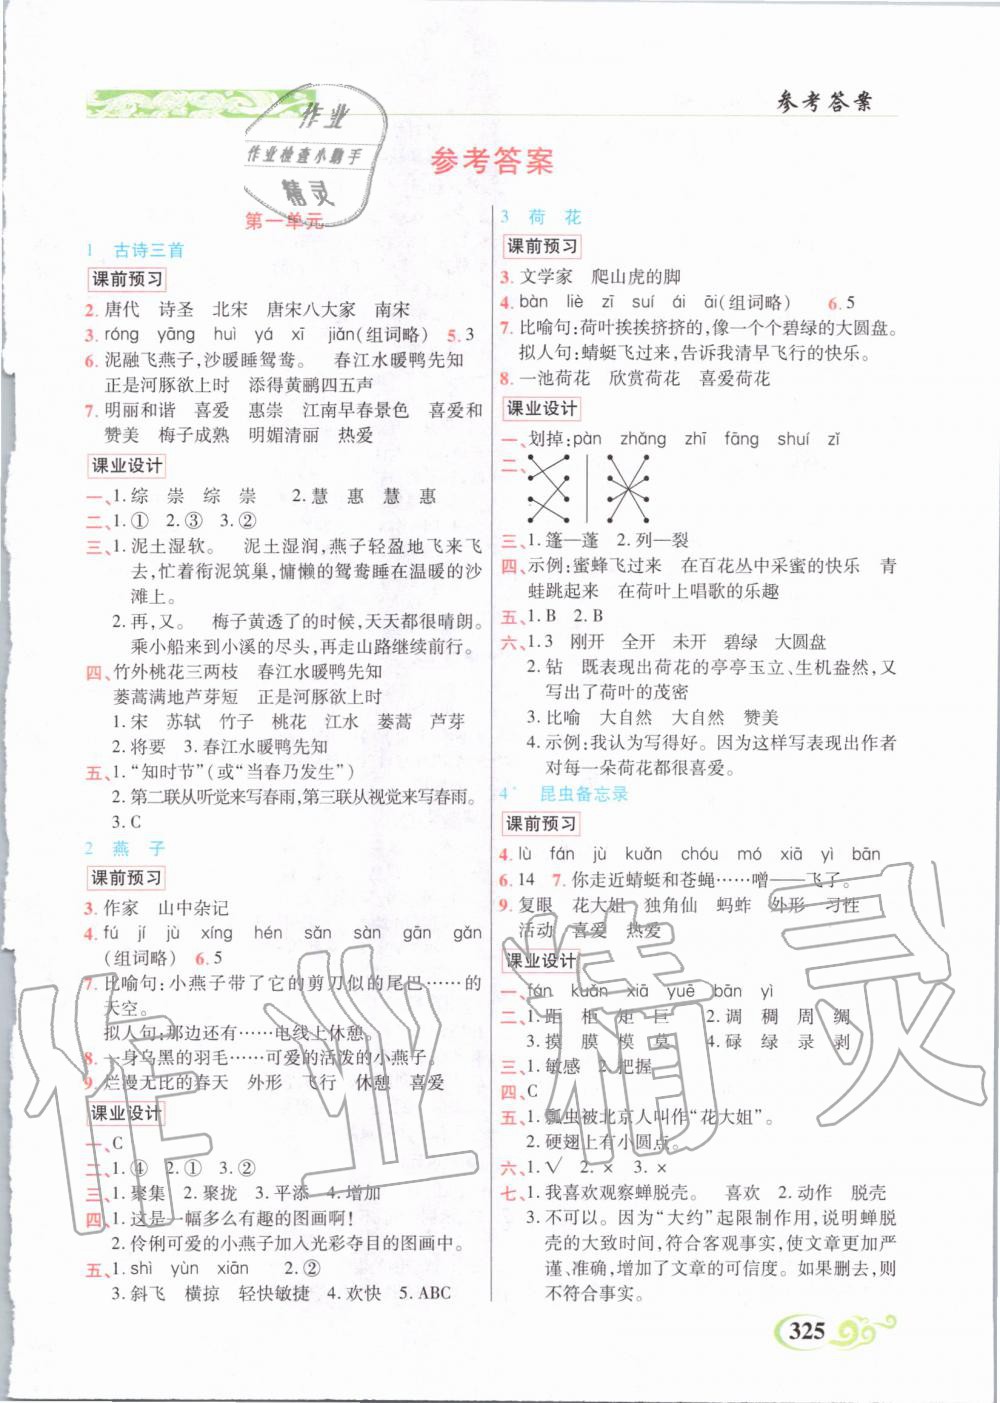 参考答案
作业
作业检查小助手
精灵
参考答案
第一单元
1 古诗三首
课前预习
2. 唐代 诗圣 北宋 唐宋八大家 南宋
3. róng yāng huì yá xī jiǎn(组词略) 5. 3
6. 泥融飞燕子,沙暖睡鸳鸯。 春江水暖鸭先知
正是河豚欲上时 添得黄鹂四五声
7. 明丽和谐 喜爱 惠崇 江南早春景色 喜爱和
赞美 梅子成熟 明媚清丽 热爱
课业设计
一、1. 综 崇 综 崇 2. 慧 惠 慧 惠
二、1. ① 2. ③ 3. ②
三、1. 泥土湿软。 泥土湿润,燕子轻盈地飞来飞
去,忙着衔泥筑巢,慵懒的鸳鸯睡在温暖的沙
滩上。
2. 再,又。 梅子黄透了的时候,天天都很晴朗。
乘小船来到小溪的尽头,再走山路继续前行。
四、竹外桃花三两枝 春江水暖鸭先知
蒌蒿满地芦芽短 正是河豚欲上时
1. 宋 苏轼 竹子 桃花 江水 蒌蒿 芦芽
2. 将要 3. 春江水暖鸭先知
五、1. “知时节”(或“当春乃发生”)
2. 第二联从听觉来写春雨,第三联从视觉来写春雨。
3. C
2 燕 子
课前预习
3. 作家 山中杂记
4. fú jí jù xíng hén sǎn sàn gān gǎn
(组词略) 6. 5
7. 比喻句:小燕子带了它的剪刀似的尾巴……的
天空。
拟人句:那边还有……电线上休憩。
8. 一身乌黑的羽毛……可爱的活泼的小燕子。
9. 烂漫无比的春天 外形 飞行 休憩 喜爱
课业设计
一、C
二、1. ④ 2. ① 3. ②
三、1. 聚集 2. 聚拢 3. 平添 4. 增加
四、1. 这是一幅多么有趣的图画啊!
2. 伶俐可爱的小燕子加入光彩夺目的图画中。
五、1. shì yùn xiān 2. ②
3. 斜飞 横掠 轻快敏捷 4. 欢快 5. ABC
3 荷 花
课前预习
3. 文学家 爬山虎的脚
4. bàn liè zī suí ái āi(组词略) 6. 5
7. 比喻句:荷叶挨挨挤挤的,像一个个碧绿的大圆盘。
拟人句:蜻蜓飞过来,告诉我清早飞行的快乐。
8. 一池荷花 欣赏荷花 喜爱荷花
课业设计
一、划掉:pàn zhǎng zhī fāng shuí zǐ
二、
三、1. 篷—蓬 2. 列—裂
四、示例:蜜蜂飞过来 在百花丛中采蜜的快乐 青
蛙跳起来 在荷叶上唱歌的乐趣
五、1. B 2. B
六、1. 3 刚开 全开 未开 碧绿 大圆盘
2. 钻 既表现出荷花的亭亭玉立、生机盎然,又
写出了荷叶的茂密
3. 比喻 大自然 大自然 赞美
4. 示例:我认为写得好。因为这样写表现出作者
对每一朵荷花都很喜爱。
4* 昆虫备忘录
课前预习
4. lù fán jù kuǎn chóu mó xiā yì bān
6. 14 7. 你走近蜻蜓和苍蝇……噌——飞了。
9. 复眼 花大姐 独角仙 蚂蚱 外形 习性
活动 喜爱 热爱
课业设计
一、fán kuǎn xiā yuē bān yì
二、1. 距 柜 矩 巨 2. 调 稠 周 绸
3. 摸 膜 模 莫 4. 碌 绿 录 剥
三、1. 敏感 2. 把握
四、C
五、1. 瓢虫被北京人叫作“花大姐”。
2. 硬翅上有小圆点。
六、1. √ 2. × 3. ×
七、1. 我喜欢观察蝉脱壳。 喜欢 2. 动作 脱壳
3. 不可以。因为“大约”起限制作用,说明蝉脱
壳的大致时间,符合客观事实,使文章更加严
谨、准确,增加了文章的可信度。如果删去,则
不符合事实。
作业精灵
325